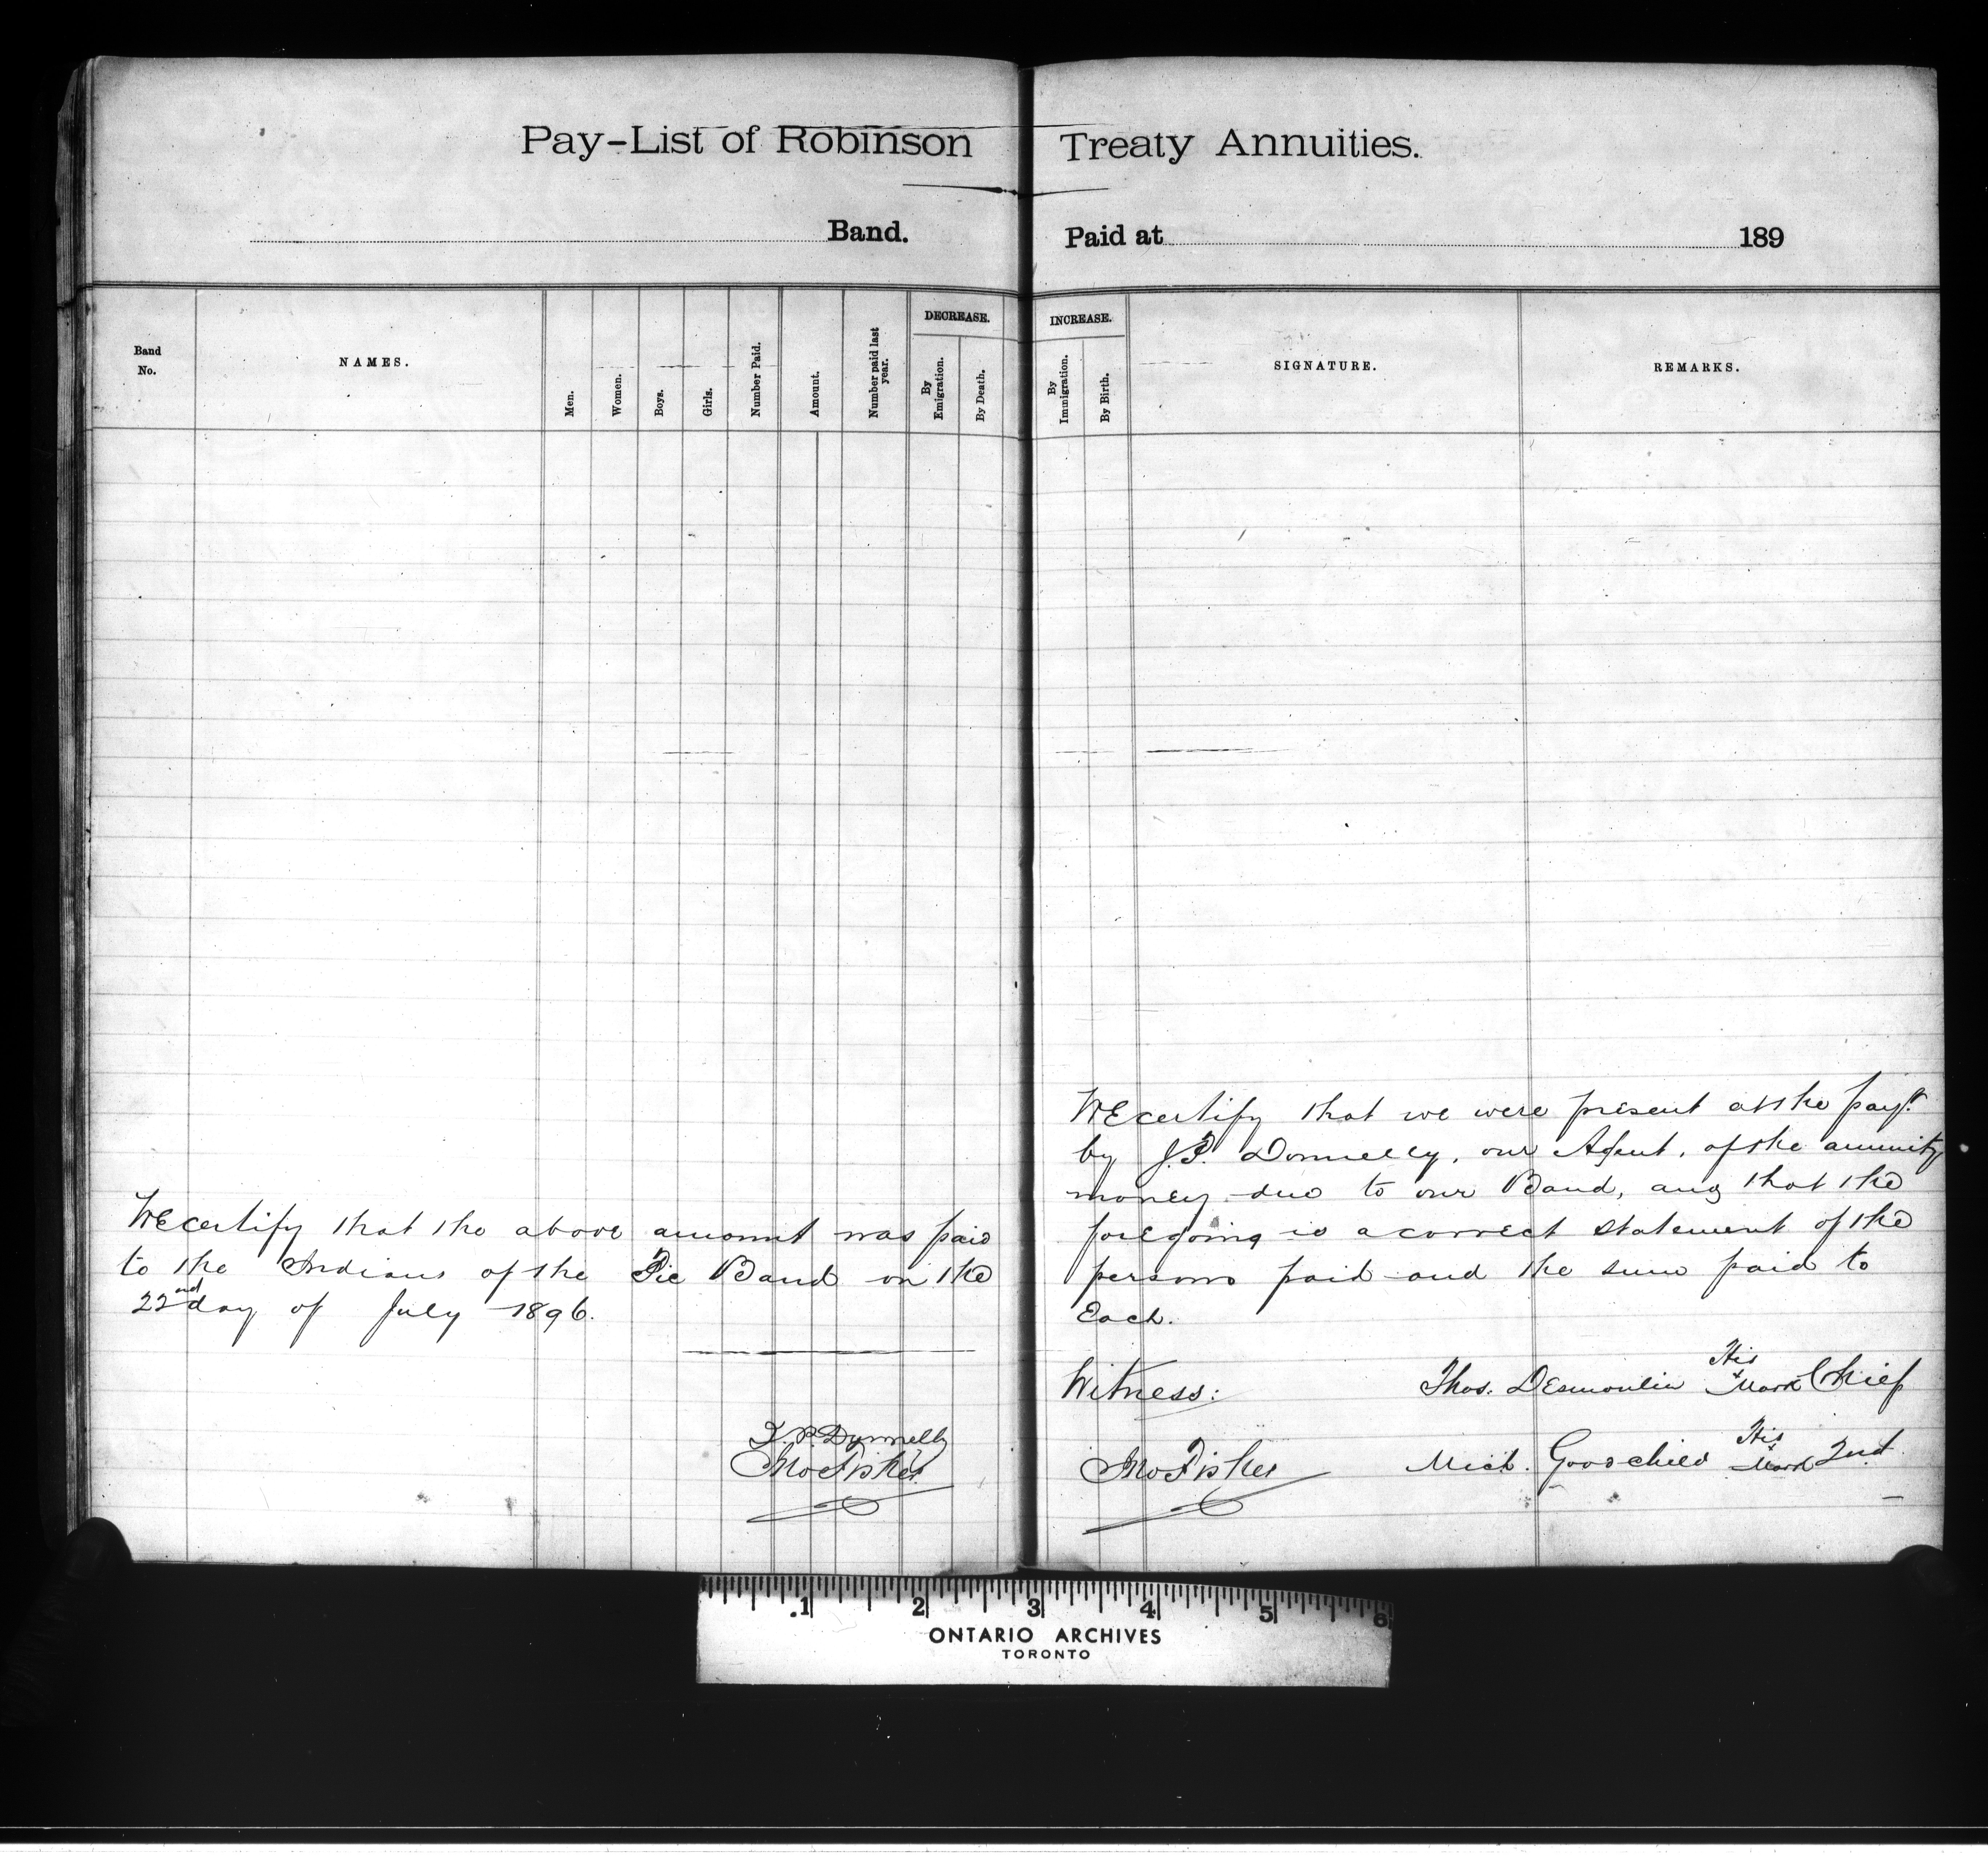 Pay-List of Robinson Treaty Annuities.
Band. Paid at 189
Band No.
NAMES.
Men.
Women.
Boys.
Girls.
Number Paid.
Amount.
Number paid last year.
DECREASE.
By Emigration.
By Death.
INCREASE.
By Immigration.
By Birth.
SIGNATURE.
REMARKS.
WE certify that the above amount was paid
to the Indians of the Pic Band on the
22nd day of July 1896.
J. P. Donnelly
Jno Fisher
WE certify that we were present at the payt.
by J.P. Donnelly, our Agent, of the annuity
money due to our Band, and that the
foregoing is a correct statement of the
persons paid and the sum paid to
Each.
Witness: Thos. Desmoulin His x Mark Chief
Jno Fisher Mich. Goodchild His x Mark 2nd
.1 2 3 4 5 6
ONTARIO ARCHIVES
TORONTO